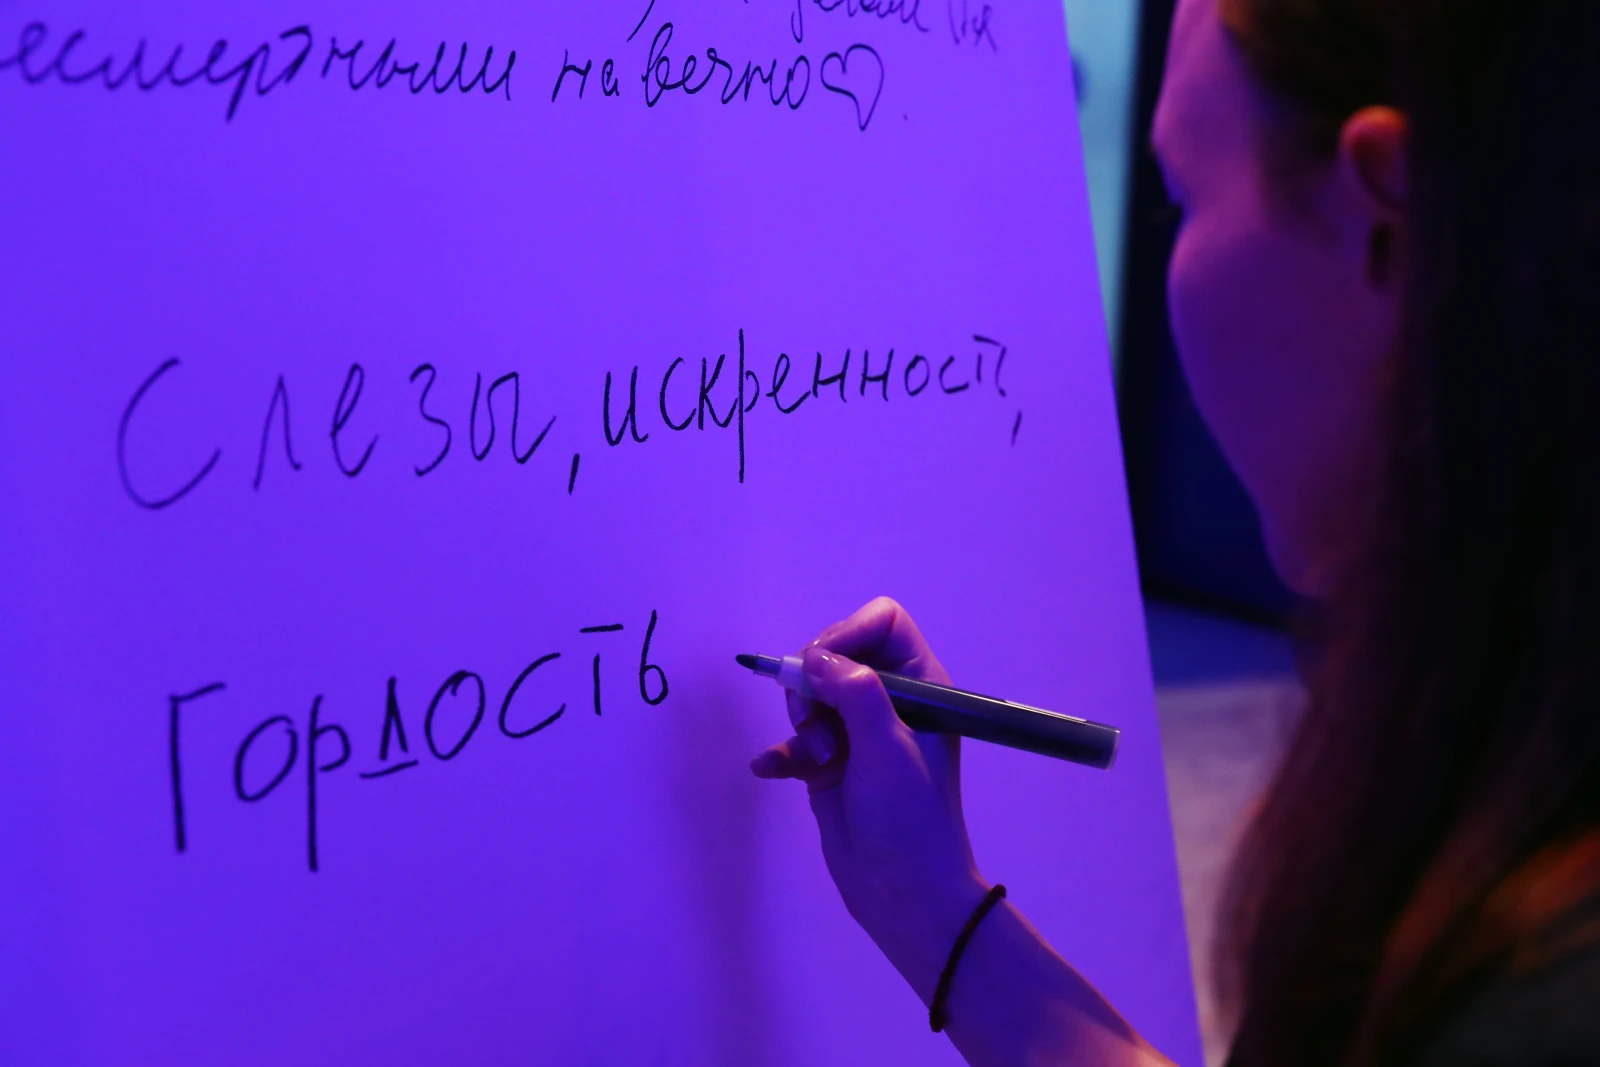 есмертными на вечно♡.
Слезы, искренность,
Гордость